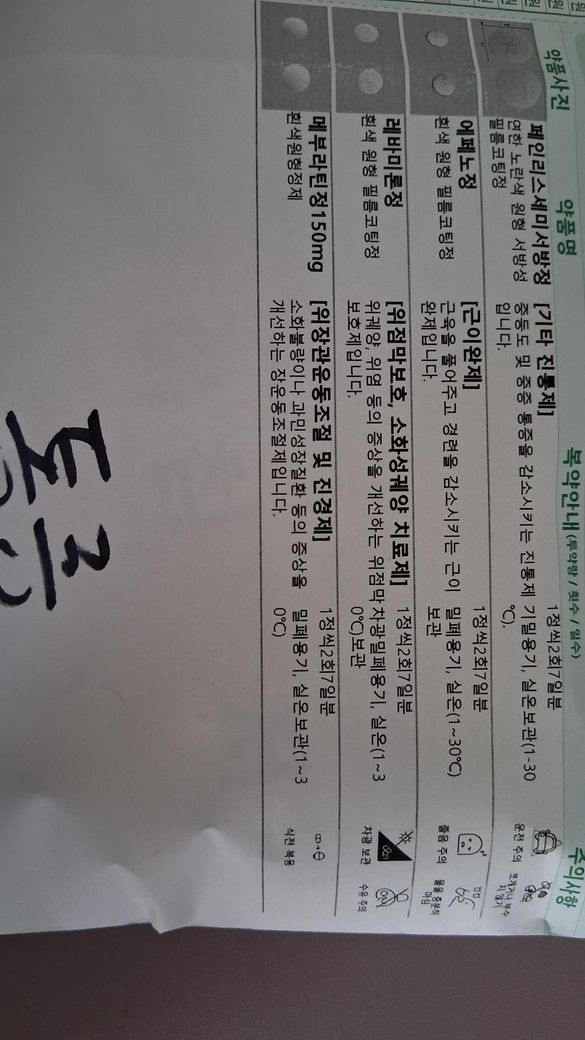 약품사진 약품명 복약안내(투약량 / 횟수 / 일수) 주의사항
페인리스세미서방정
연한 노란색 원형 서방성
필름코팅정
[기타 진통제]
중등도 및 중증 통증을 감소시키는 진통제
입니다.
1정씩2회7일분
기밀용기, 실온보관(1-30
℃).
운전 주의
쪼개거나 부수
지 않기
에페노정
흰색 원형 필름코팅정
[근이완제]
근육을 풀어주고 경련을 감소시키는 근이
완제입니다.
1정씩2회7일분
밀폐용기, 실온(1~30℃)
보관
졸음 주의
물을 충분히
마심
레바미론정
흰색 원형 필름코팅정
[위점막보호, 소화성궤양 치료제]
위궤양, 위염 등의 증상을 개선하는 위점막
보호제입니다.
1정씩2회7일분
차광밀폐용기, 실온(1~3
0℃)보관
차광 보관
수유 주의
메부라틴정150mg
흰색원형정제
[위장관운동조절 및 진경제]
소화불량이나 과민성장질환 등의 증상을
개선하는 장운동조절제입니다.
1정씩2회7일분
밀폐용기, 실온보관(1~3
0℃)
식전 복용